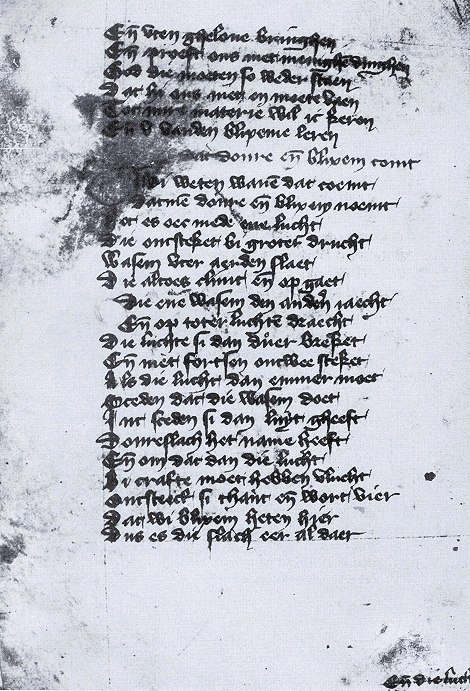 Eñ vten ghelove bringhen
Eñ proeft ons met menighen dinghen
God die moeten so weder staen
Dat hi ons met en moete vaen
Tot mire materie wil ic keren
Eñ v vanden blixeme leren
dat donre eñ blixem comt
Wi weten wanē dat coemt
Datmē donre eñ blixem noemt
Tot es oec mede ene lucht
Die ontsteket bi groter drucht
Wasem vter aerden slaet
Die altoes climt eñ op gaet
Die ene wasem den anderē iaecht
Eñ op toter luchtē draecht
Die luchte si dan duer breket
Eñ met fortsen ontwee steket
Als die lucht dan emmer moet
Sceden dat die wasem doet
Int sceden si dan luyt gheeft
Donreslach het name heeft
Eñ om dat dan die lucht
Bi crafte moet hebben vlucht
Ontsteict si thant eñ wort vier
Dat wi blixem heten hier
Dus es die slach eer al daer
Eñ die luch